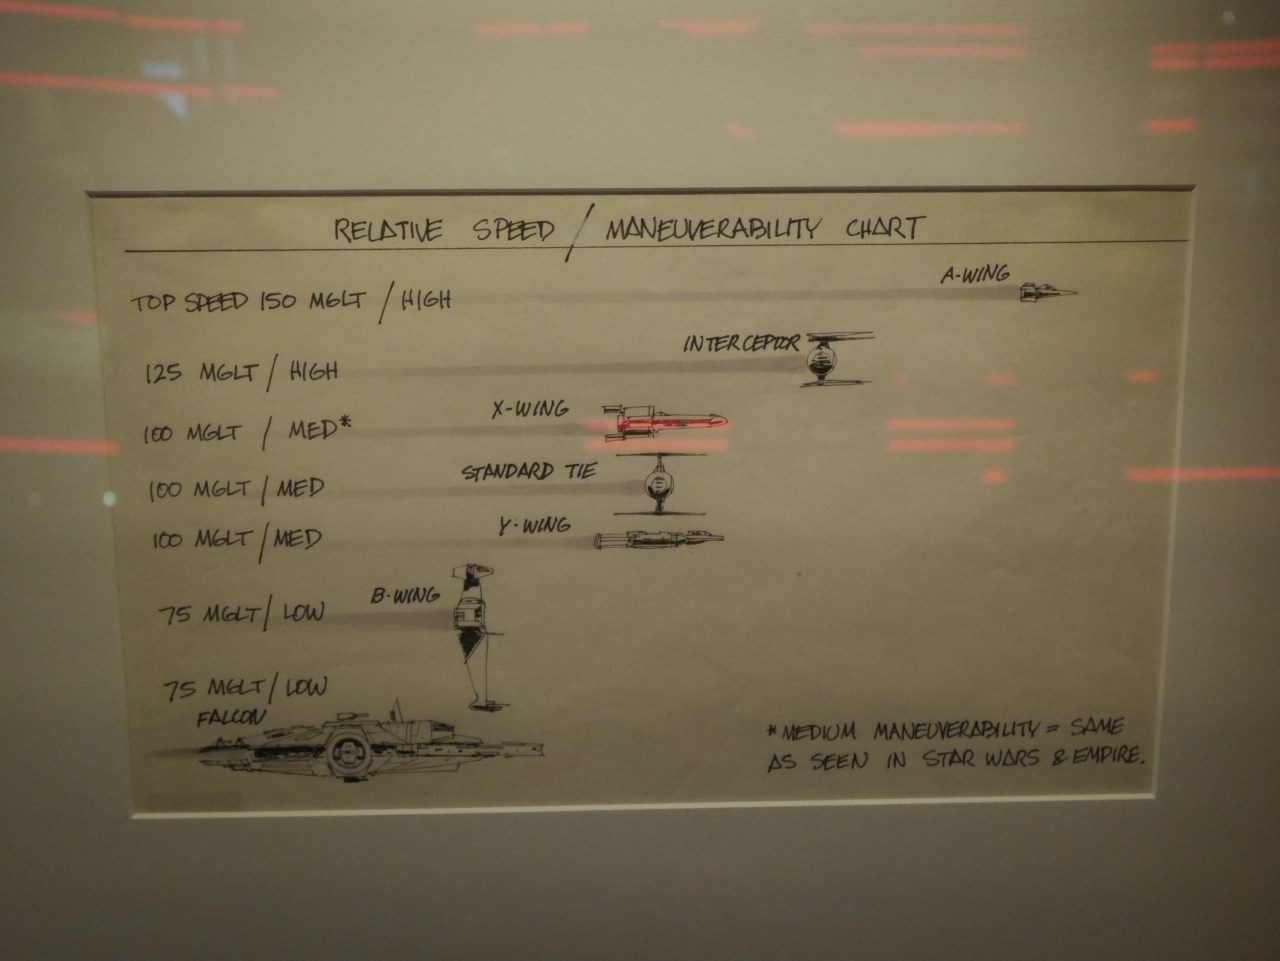 RELATIVE SPEED / MANEUVERABILITY CHART
A-WING
TOP SPEED 150 MGLT / HIGH
INTERCEPTOR
125 MGLT / HIGH
X-WING
100 MGLT / MED*
STANDARD TIE
100 MGLT / MED
Y-WING
100 MGLT / MED
B-WING
75 MGLT / LOW
75 MGLT / LOW
FALCON
*MEDIUM MANEUVERABILITY = SAME
AS SEEN IN STAR WARS & EMPIRE.